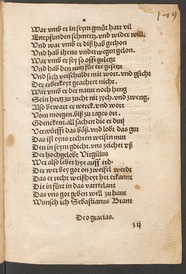 1-19
War vmb er in seym gmüt hatt vil
Entpfunden schmertz, vnd wider will,
Vnd was vmb er diß hat gethon
Vnd hab ihens vnderwegen gelon.
War vmb er sey so offt gelegt
Vnd hab den nutz für er
Vnd sich verschuldt mit wort, vnd gsicht
Die erberkeit geachtet nicht.
Wie vmb er der natur noch heng
Sein hertz zu zucht nit zych, vnd zweng,
Also bewert er werck, vnd wort
Vom morgen, biß zu tages ort.
Gedenckent all sachen die er
Verwürfft das böß, vnd lobt das gut
Das ist eyns rechten weisen mut
Den vns in seym gedicht verzelt
Der hochgelobt Virgilius
Wer also lebt hye auff erd,
Der wer bey got on zweifel werdt
Das er recht weißheyt hie erkant
Die in fürt in das vatterlant
Das vns got geben well zu hant
Wünsch ich Sebastianus Brant
Deo gracias.